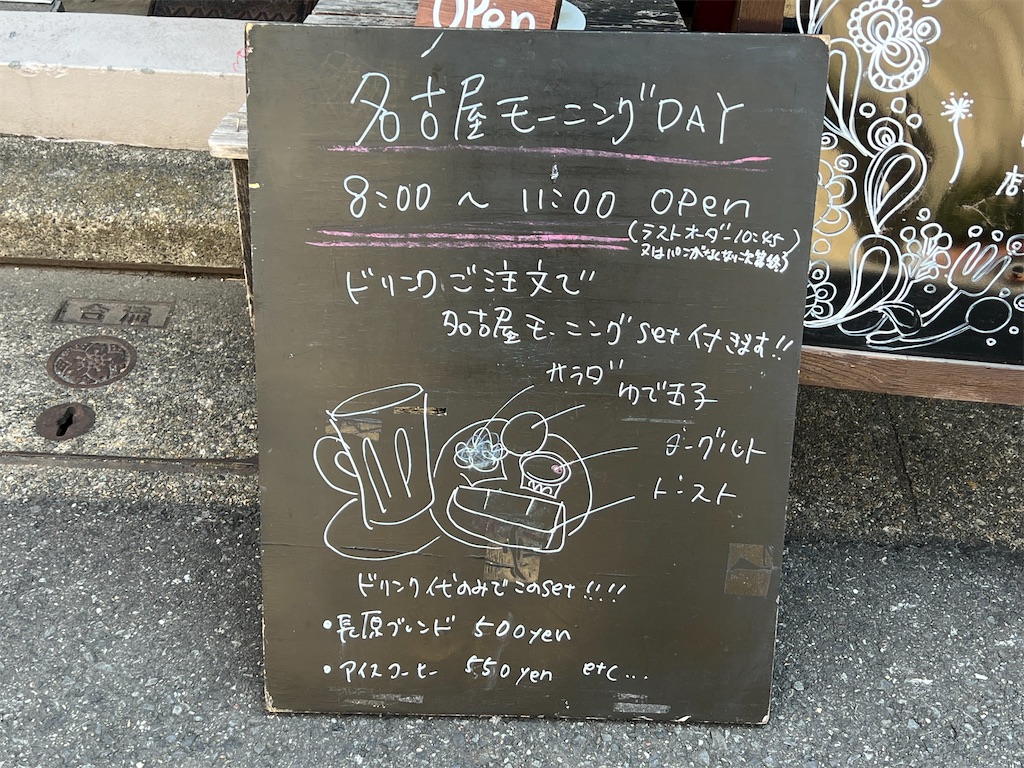 open
名古屋モーニングDAY
8:00 ~ 11:00 open
(ラストオーダー10:45
又はパンがなくなり次第終了)
ドリンクご注文で
名古屋モーニングset付きます!!
サラダ
ゆで玉子
ヨーグルト
トースト
ドリンク代のみでこのset!!!!
・長原ブレンド 500yen
・アイスコーヒー 550yen etc...
店